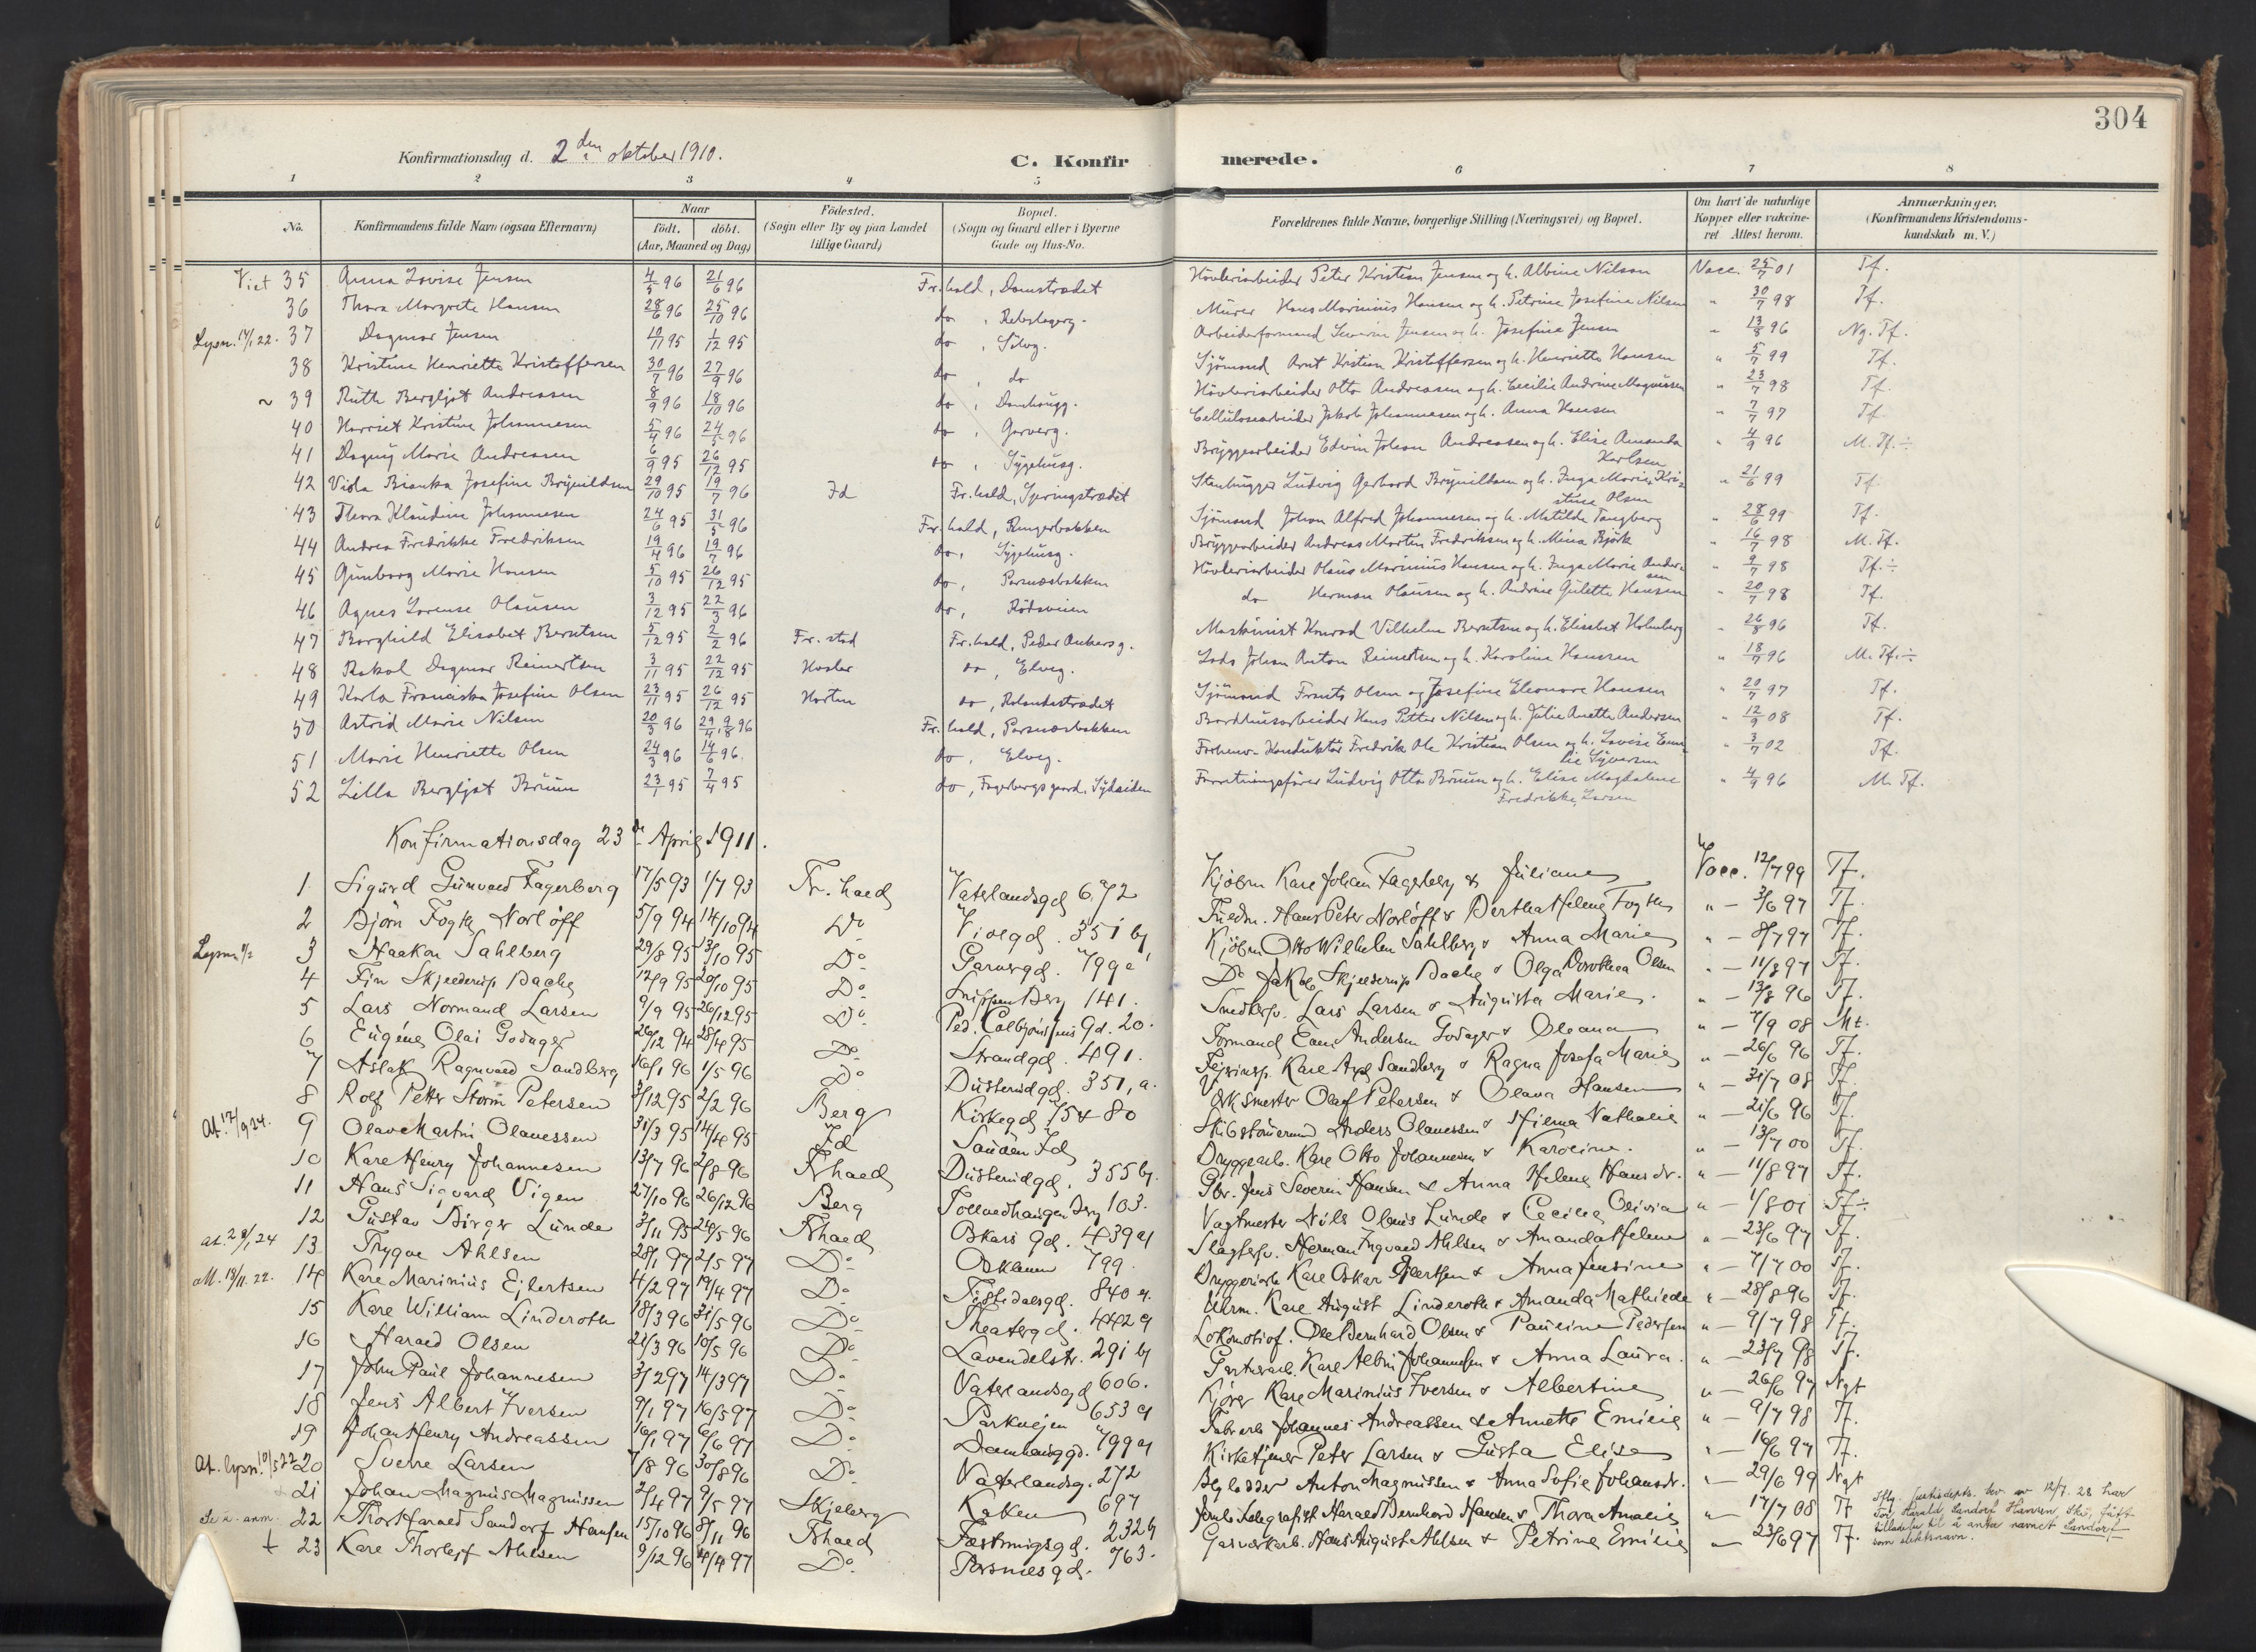 304
Konfirmationsdag d. 2den oktober 1910. C. Konfirmerede.
1 2 3 4 5 6 7 8
No. Konfirmandens fulde Navn (ogsaa Efternavn) Naar födt. döbt. (Aar, Maaned og Dag) Födested. (Sogn eller By og paa Landet tillige Gaard) Bopæl. (Sogn og Gaard eller i Byerne Gade og Hus-No. Forældrenes fulde Navne, borgerlige Stilling (Næringsvei) og Bopæl. Om havt de naturlige Kopper eller vakcineret Attest herom. Anmærkninger. (Konfirmandens Kristendomskundskab m. V.)
35 Anna Lovise Jensen 4/5 96 21/6 96 Fr.hald, Damstrædet Høvleriarbeider Peter Kristian Jensen og h. Albine Nilsen Vacc. 25/7 01 Tf.
36 Thora Margrete Hansen 28/6 96 25/10 96 do , Rebslagerg. Murer Hans Marinius Hansen og h. Petrine Josefine Nilsen " 30/7 98 Tf.
Lysn. 17/1 22. 37 Dagmar Jensen 10/11 95 1/12 95 do , Silvg. Arbeiderformand Severin Jensen og h. Josefine Jensen " 13/8 96 Ng. Tf.
38 Kristine Henriette Kristoffersen 30/7 96 27/9 96 do , do Sjömand Arnt Kristian Kristoffersen og h. Henriette Hansen " 5/7 99 Tf.
~ 39 Ruth Bergljot Andreasen 8/9 96 18/10 96 do , Damhaugg. Høvleriarbeider Otto Andreasen og h. Cecilie Andrine Magnussen " 23/7 98 Tf.
40 Harriet Kristine Johannesen 5/4 96 24/5 96 do , Garverg. Cellulosearbeider Jakob Johannesen og h. Anna Hansen " 7/7 97 Tf.
41 Dagny Marie Andreasen 6/9 95 26/12 95 do , Sygehusg. Bryggearbeider Edvin Johan Andreasen og h. Elise Amanda Karlsen " 4/9 96 M. Tf. ÷
42 Viola Bianka Josefine Brynildsen 29/10 95 19/7 96 Id Fr.hald, Syeringstrædet Stenhugger Ludvig Gerhard Brynildsen og h. Inga Marie Kristine Olsen " 21/6 99 Tf.
43 Thora Klaudine Johannesen 24/6 95 31/5 96 Fr.hald, Rungerbakken Sjömand Johan Alfred Johannesen og h. Matilde Tangberg " 28/6 99 Tf.
44 Andrea Fredrikke Fredriksen 19/4 96 19/7 96 do, Sygehusg. Bryggearbeider Andreas Morten Fredriksen og h. Mina Bjørk " 16/7 98 M. Tf.
45 Gunborg Marie Hansen 5/10 95 26/12 95 do, Porsnesbakken Høvleriarbeider Olaus Marinius Hansen og h. Inga Marie Andersen " 9/7 98 Tf. ÷
46 Agnes Lorense Olausen 3/12 95 22/3 96 do, Rødsveien do Herman Olausen og h. Andrine Gulette Hansen " 20/7 98 Tf.
47 Borghild Elisabet Berntsen 5/12 95 2/2 96 Fr.stad Fr.hald, Peder Ankersg. Maskinist Konrad Vilhelm Berntsen og h. Elisabet Holmberg " 26/8 96 Tf.
48 Rakel Dagmar Reinertsen 3/11 95 22/12 95 Hvaler do, Elveg. Lods Johan Anton Reinertsen og h. Karoline Hansen " 18/7 96 M. Tf. ÷
49 Karla Franciska Josefine Olsen 23/11 95 26/12 95 Horten do, Rolandstrædet Sjömand Frants Olsen og Josefine Eleonore Hansen " 20/7 97 Tf.
50 Astrid Marie Nilsen 20/3 96 29/4, 9/8 96 Fr.hald, Porsnesbakken Bordhusarbeider Hans Petter Nilsen og h. Julie Anette Andersen " 12/9 08 Tf.
51 Marie Henriette Olsen 24/3 96 14/6 96. do, Elveg. Forhenv. Konduktør Fredrik Ole Kristian Olsen og h. Lovise Emilie Syversen " 3/7 02 Tf.
52 Lilla Bergljot Bruun 23/1 95 7/4 95 do, Fagerbergs gaard, Sydsiden Forretningsfører Ludvig Otto Bruun og h. Elise Magdalene Fredrikke Larsen " 4/9 96 M. Tf.
Konfirmationsdag 23de April 1911.
1 Sigurd Gunvald Fagerberg 17/5 93 1/7 93 Fr.hald Vaterlandsgd 672 Kjøbm Karl Johan Fagerberg & Juliane Vacc. 12/7 99 Tf.
2 Bjørn Fogth Norløff 5/9 94 14/10 94 Do Violgd. 351 b Hans Peter Norløff & Bertha Helene Fogth " - 3/6 97 Tf.
Lysn 3 Haakon Sahlberg 29/8 95 13/10 95 Do Garvergd. 799 a Kjøbm Otto Wilhelm Sahlberg & Anna Marie " - 8/7 97 Tf.
4 Fin Skjelderup Bache 12/9 95 20/10 95 Do Berg 141. Do Jakob Skjelderup Bache & Olga Dorothea Olsen " - 11/8 97 Tf.
5 Lars Normand Larsen 9/9 95 26/12 95 Do Ped. Colbjørnsens Gd. 20. Smedsv. Lars Larsen & Augusta Marie. " - 13/8 96 Tf.
6 Eugène Olai Godager 26/12 94 28/4 95 Do Strandgd. 491. Formand Andersen Godager & Oleana " - 7/9 08 Mt.
7 Aslak Ragnvald Sandberg 16/1 96 1/5 96 Do Busterudgd. 351, a. Karl Axel Sandberg & Ragna Josefa Marie " - 26/6 96 Tf.
8 Rolf Petter Storm Petersen 3/12 95 2/2 96 Berg Kirkegd 75 & 80 Værksmester Olaf Petersen & Olava Hansen " - 31/7 08 Tf.
At. 12/9 24. 9 Olav Martin Olavessen 31/3 95 14/4 95 Id Sauøen Id Anders Olavessen & Nathalie " - 21/6 96 Tf.
10 Karl Henry Johannesen 13/7 96 2/8 96 Fr.hald Busterudgd. 355 b. Bryggearb. Karl Otto Johannesen & Karoline. " - 13/7 00 Tf.
11 Hans Sigvard Vigen 27/10 96 26/12 96 Berg Berg 103. Gbr. Jens Severin Hansen & Anna Helene Hansdr. " - 11/8 97 Tf.
12 Gustav Birger Lunde 3/11 95 24/5 96 Fr.hald Oskars gd. 439 a Vagtmester Nils Olaus Lunde & Cecilie Olivia " - 1/8 01 Tf ÷
at. 28/1 24 13 Trygve Ahlsen 28/1 97 2/5 97 Do Osklunden 799 Slagtersv. Herman Ingvald Ahlsen & Amanda Helene " - 23/6 97 Tf.
M. 18/11. 22. 14 Karl Marinius Eilertsen 4/2 97 19/4 97 Do Tistedalsgd. 840 a. Bryggeriarb Karl Oskar Eilertsen & Anna Jensine " - 7/7 00 Tf.
15 Karl William Linderoth 18/3 96 31/5 96 Do Theatergd. 442 a Uhrm. Karl August Linderoth & Amanda Mathilde " - 28/8 96 Tf.
16 Harald Olsen 21/3 96 10/5 96 Do Lavendelstr. 291 b Lokomotivf. Ole Bernhard Olsen & Pauline Pedersen " - 9/7 98 Tf.
17 John Paul Johannesen 3/2 97 14/3 97 Do Vaterlandsgd 606. Karl Albin Johannesen & Anna Laura. " - 23/7 98 Tf.
18 Jens Albert Iversen 9/1 97 16/5 97 Do Parkvejen 653 a Kjører Karl Marinius Iversen & Albertine " - 26/6 97 Ngt
19 Johan Henry Andreassen 16/1 97 6/6 97 Do Damhauggd. 799 a Fabrarb Johannes Andreassen & Annette Emilie " - 9/7 98 Tf.
At. lysn. 10/5 22 20 Sverre Larsen 7/8 96 30/8 96 Do Vaterlandsg. 272 Kirketjener Peter Larsen & Gusta Elise " - 16/6 97 Tf.
21 Johan Magnus Magnussen 2/4 97 9/5 97 Skjeberg Kaken 697 Anton Magnussen & Anna Sofie Johansdr. " - 29/6 99 Ngt
Se u. anm. 22 Thor Harald Sandorf Hansen 15/10 96 8/11 96 Fr.hald Fæstningsgd. 232 b Jernb.telegrafist Harald Bernhard Hansen & Thora Amalie " 17/7 08 Tf
Iflg. Justisdepts. bev. av 12/7. 28 har Tor Harald Sandorf Hansen Ski, fått tilladelse til å anta navnet Sandorf som slektsnavn.
+ 23 Karl Thorleif Ahlsen 9/12 96 4/4 97 Do Porsnesgd. 763. Gasværkarb. Hans August Ahlsen & Petrine Emilie " - 23/6 97 Tf.